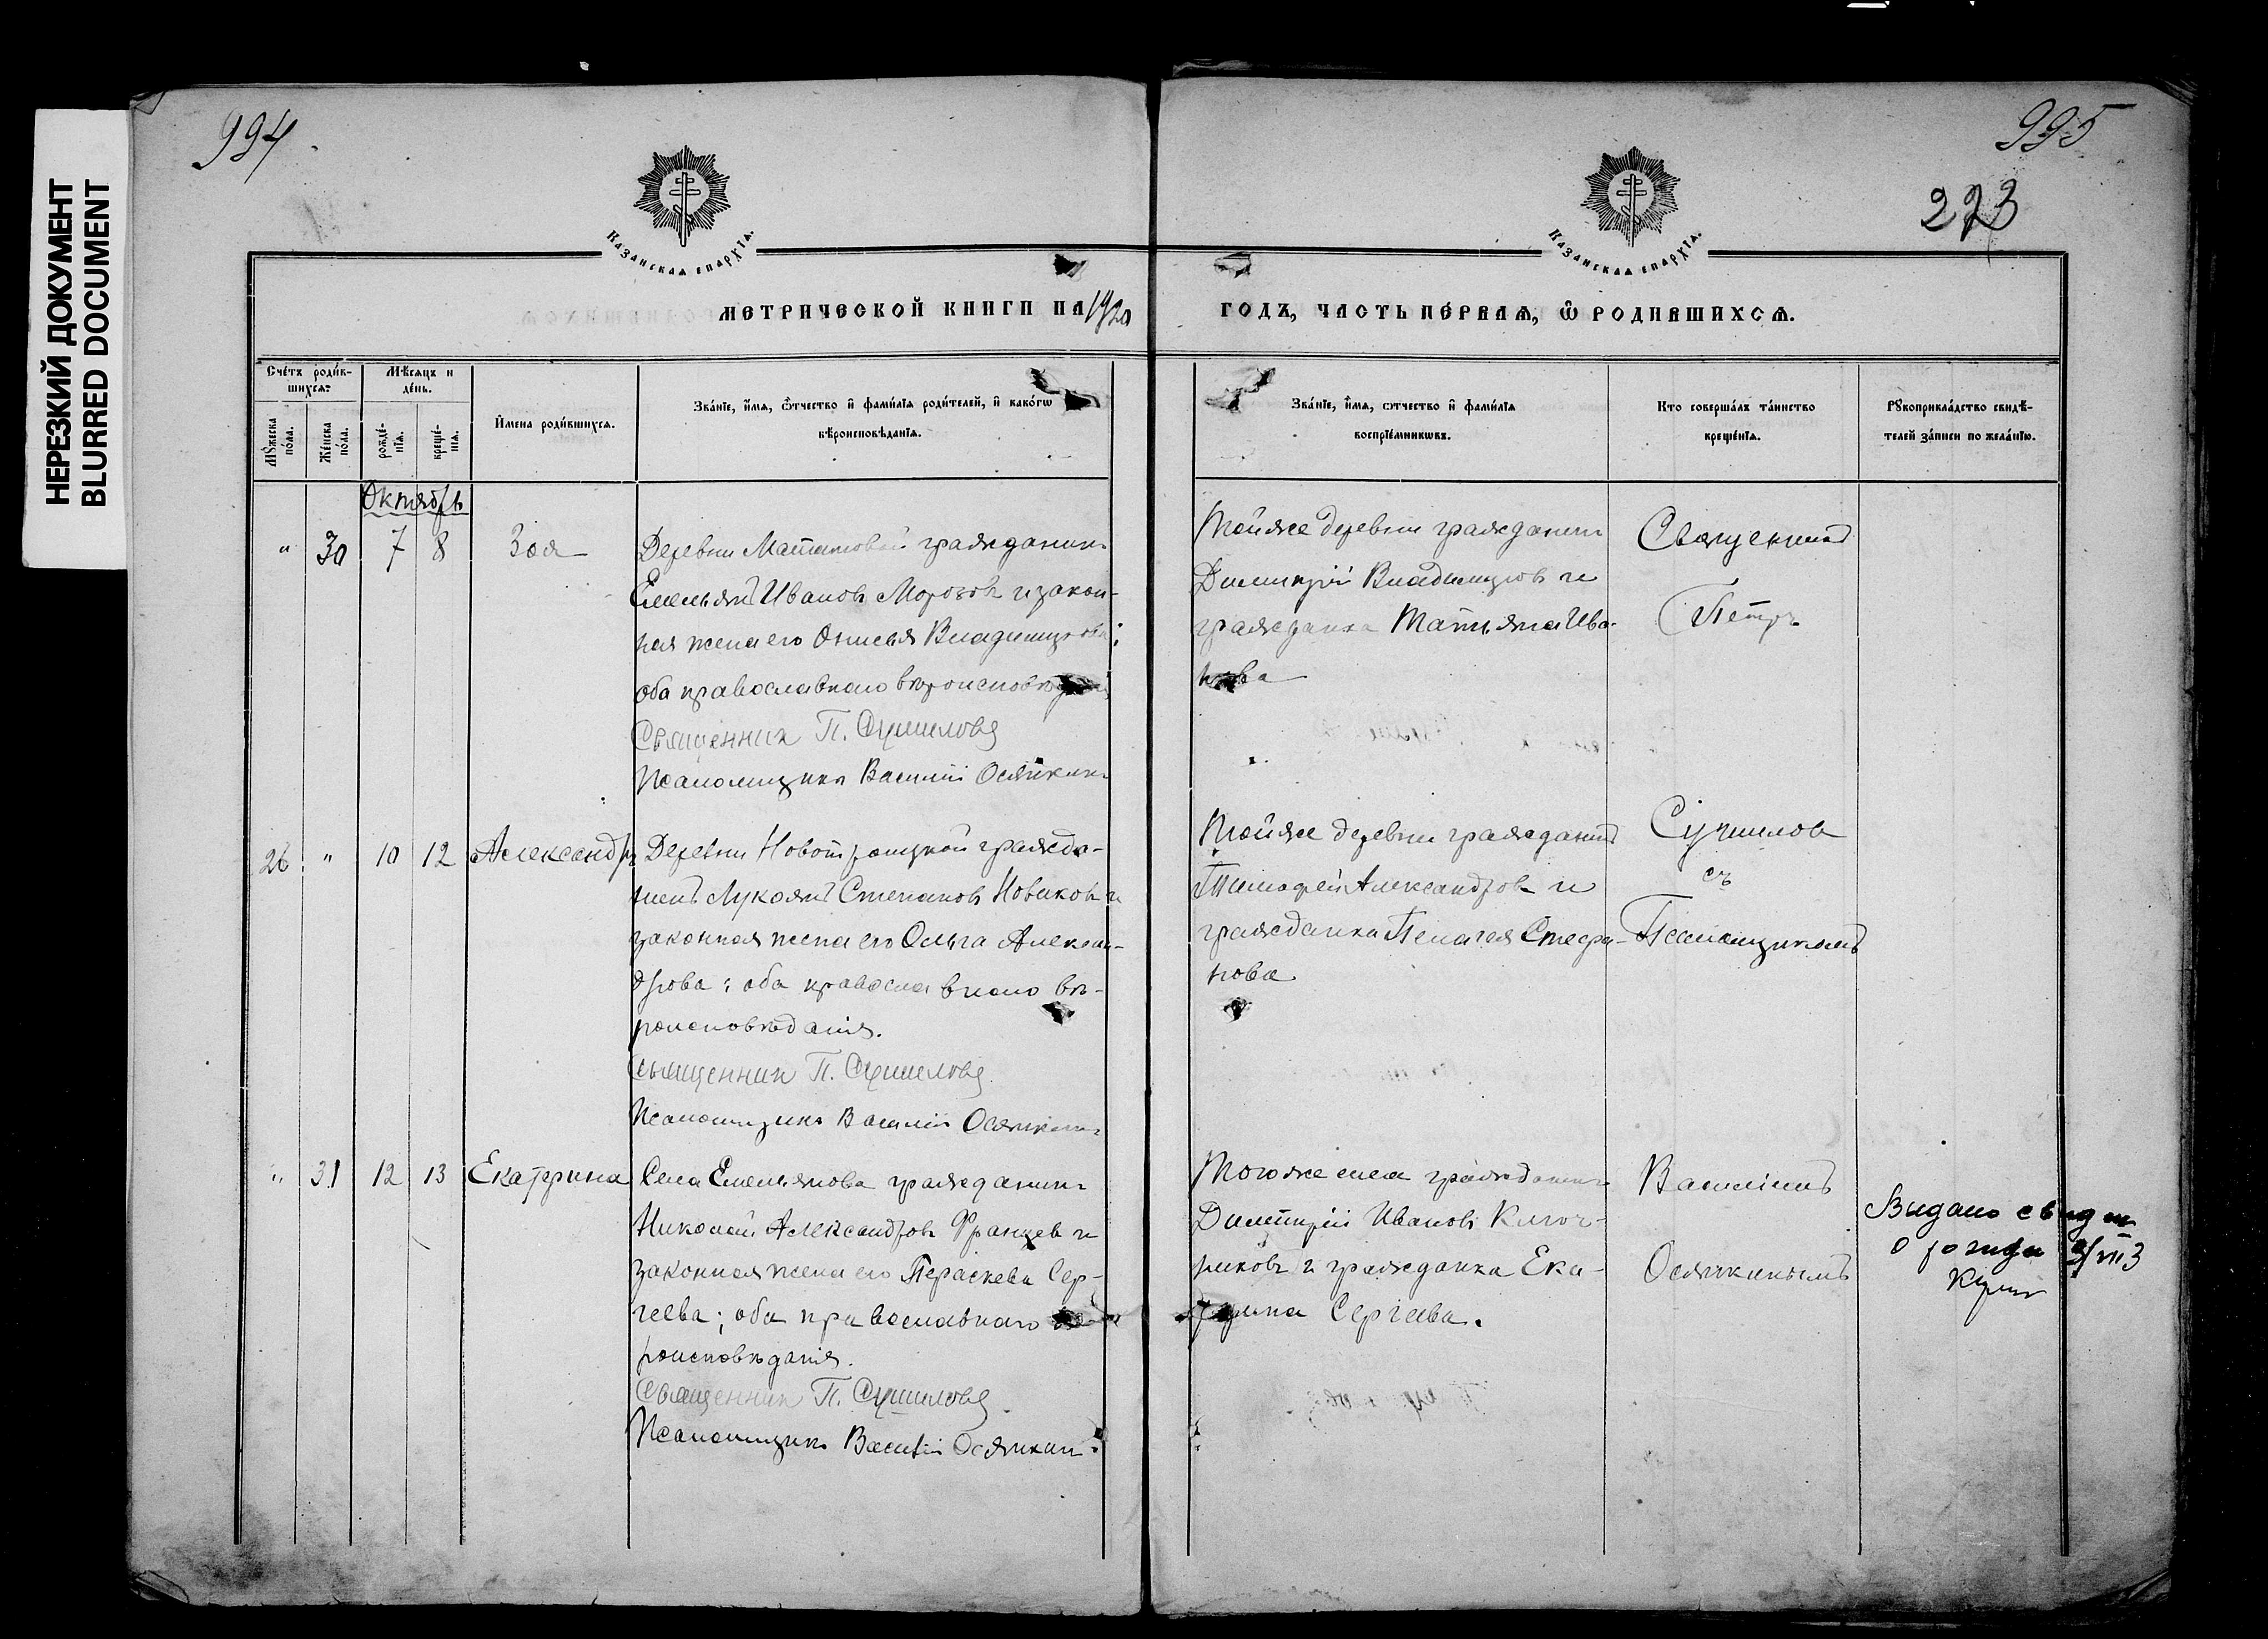 НЕРЕЗКИЙ ДОКУМЕНТ
BLURRED DOCUMENT
994
995
273
Казанская епархїа.
Казанская епархїа.
МЕТРИЧЕСКОЙ КНИГИ НА 1920
ГОДЪ, ЧАСТЬ ПЕ́РВАѦ, Ѡ҆ РОДИВШИХСѦ.
Сче́тъ роди́в-
шихсѧ:
Мѣ́сѧцъ и
де́нь.
Мꙋ́жеска по́ла.
Же́нска по́ла.
рожде́-нїѧ.
креще́-нїѧ.
И҆мена роди́вшихсѧ.
Зва́нїе, и҆́мѧ, ѻ҆́тчество и҆ фами́лїѧ роди́телей, и҆ како́гѡ
вѣроисповѣ́данїѧ.
Зва́нїе, и҆́мѧ, ѻ҆́тчество и҆ фами́лїѧ
воспрїе́мникѡвъ.
Кто соверша́лъ та́инство
креще́нїѧ.
Рꙋкоприкла́дство свидѣ́-
телей за́писи по жела́нїю.
Октябрь
" 30 7 8 Зоя
Деревни гражданинъ
Емельянъ Ивановъ Морозовъ и закон-
ная жена его Онисья Владимирова;
оба православнаго вѣроисповѣданія
Священник П. Сушиловъ
Псаломщикъ Василій Осяжкинъ
Тойже деревни гражданинъ
Димитрій Владимировъ и
гражданка Татьяна Ива-
нова
Священникъ
Петръ
26 " 10 12 Александръ
Деревни Новотроицкой гражда-
нинъ Лукоянъ Степановъ Новиковъ и
законная жена его Ольга Алексан-
дрова; оба православнаго вѣ-
роисповѣданія.
Священник П. Сушиловъ
Псаломщикъ Василій Осяжкинъ
Тойже деревни гражданинъ
Тимофей Александровъ и
гражданка Пелагея Стефа-
нова
Сушиловъ
съ
Псаломщикомъ
" 31 12 13 Екатерина
Села Емельянова гражданинъ
Николай Александровъ Францев и
законная жена его Параскева Сер-
геева; оба православнаго вѣ-
роисповѣданія.
Священник П. Сушиловъ
Псаломщикъ Василій Осяжкин.
Тогоже села гражданинъ
Димитрій Ивановъ Ключ-
никовъ и гражданка Ека-
терина Сергеева.
Василіемъ
Осяжкинымъ
Выдано свид
о